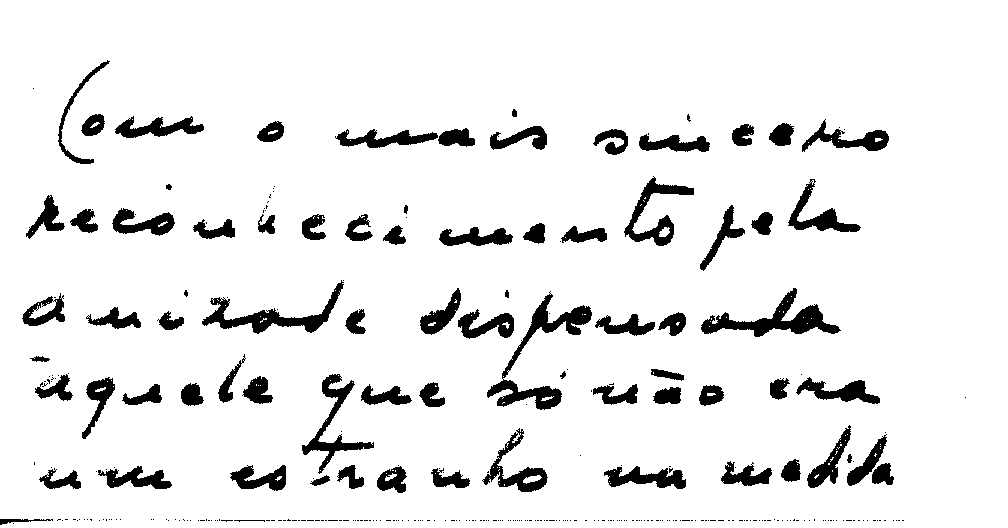 Com o mais sincero
reconhecimento pela
amizade dispensada
àquele que só não era
um estranho na medida